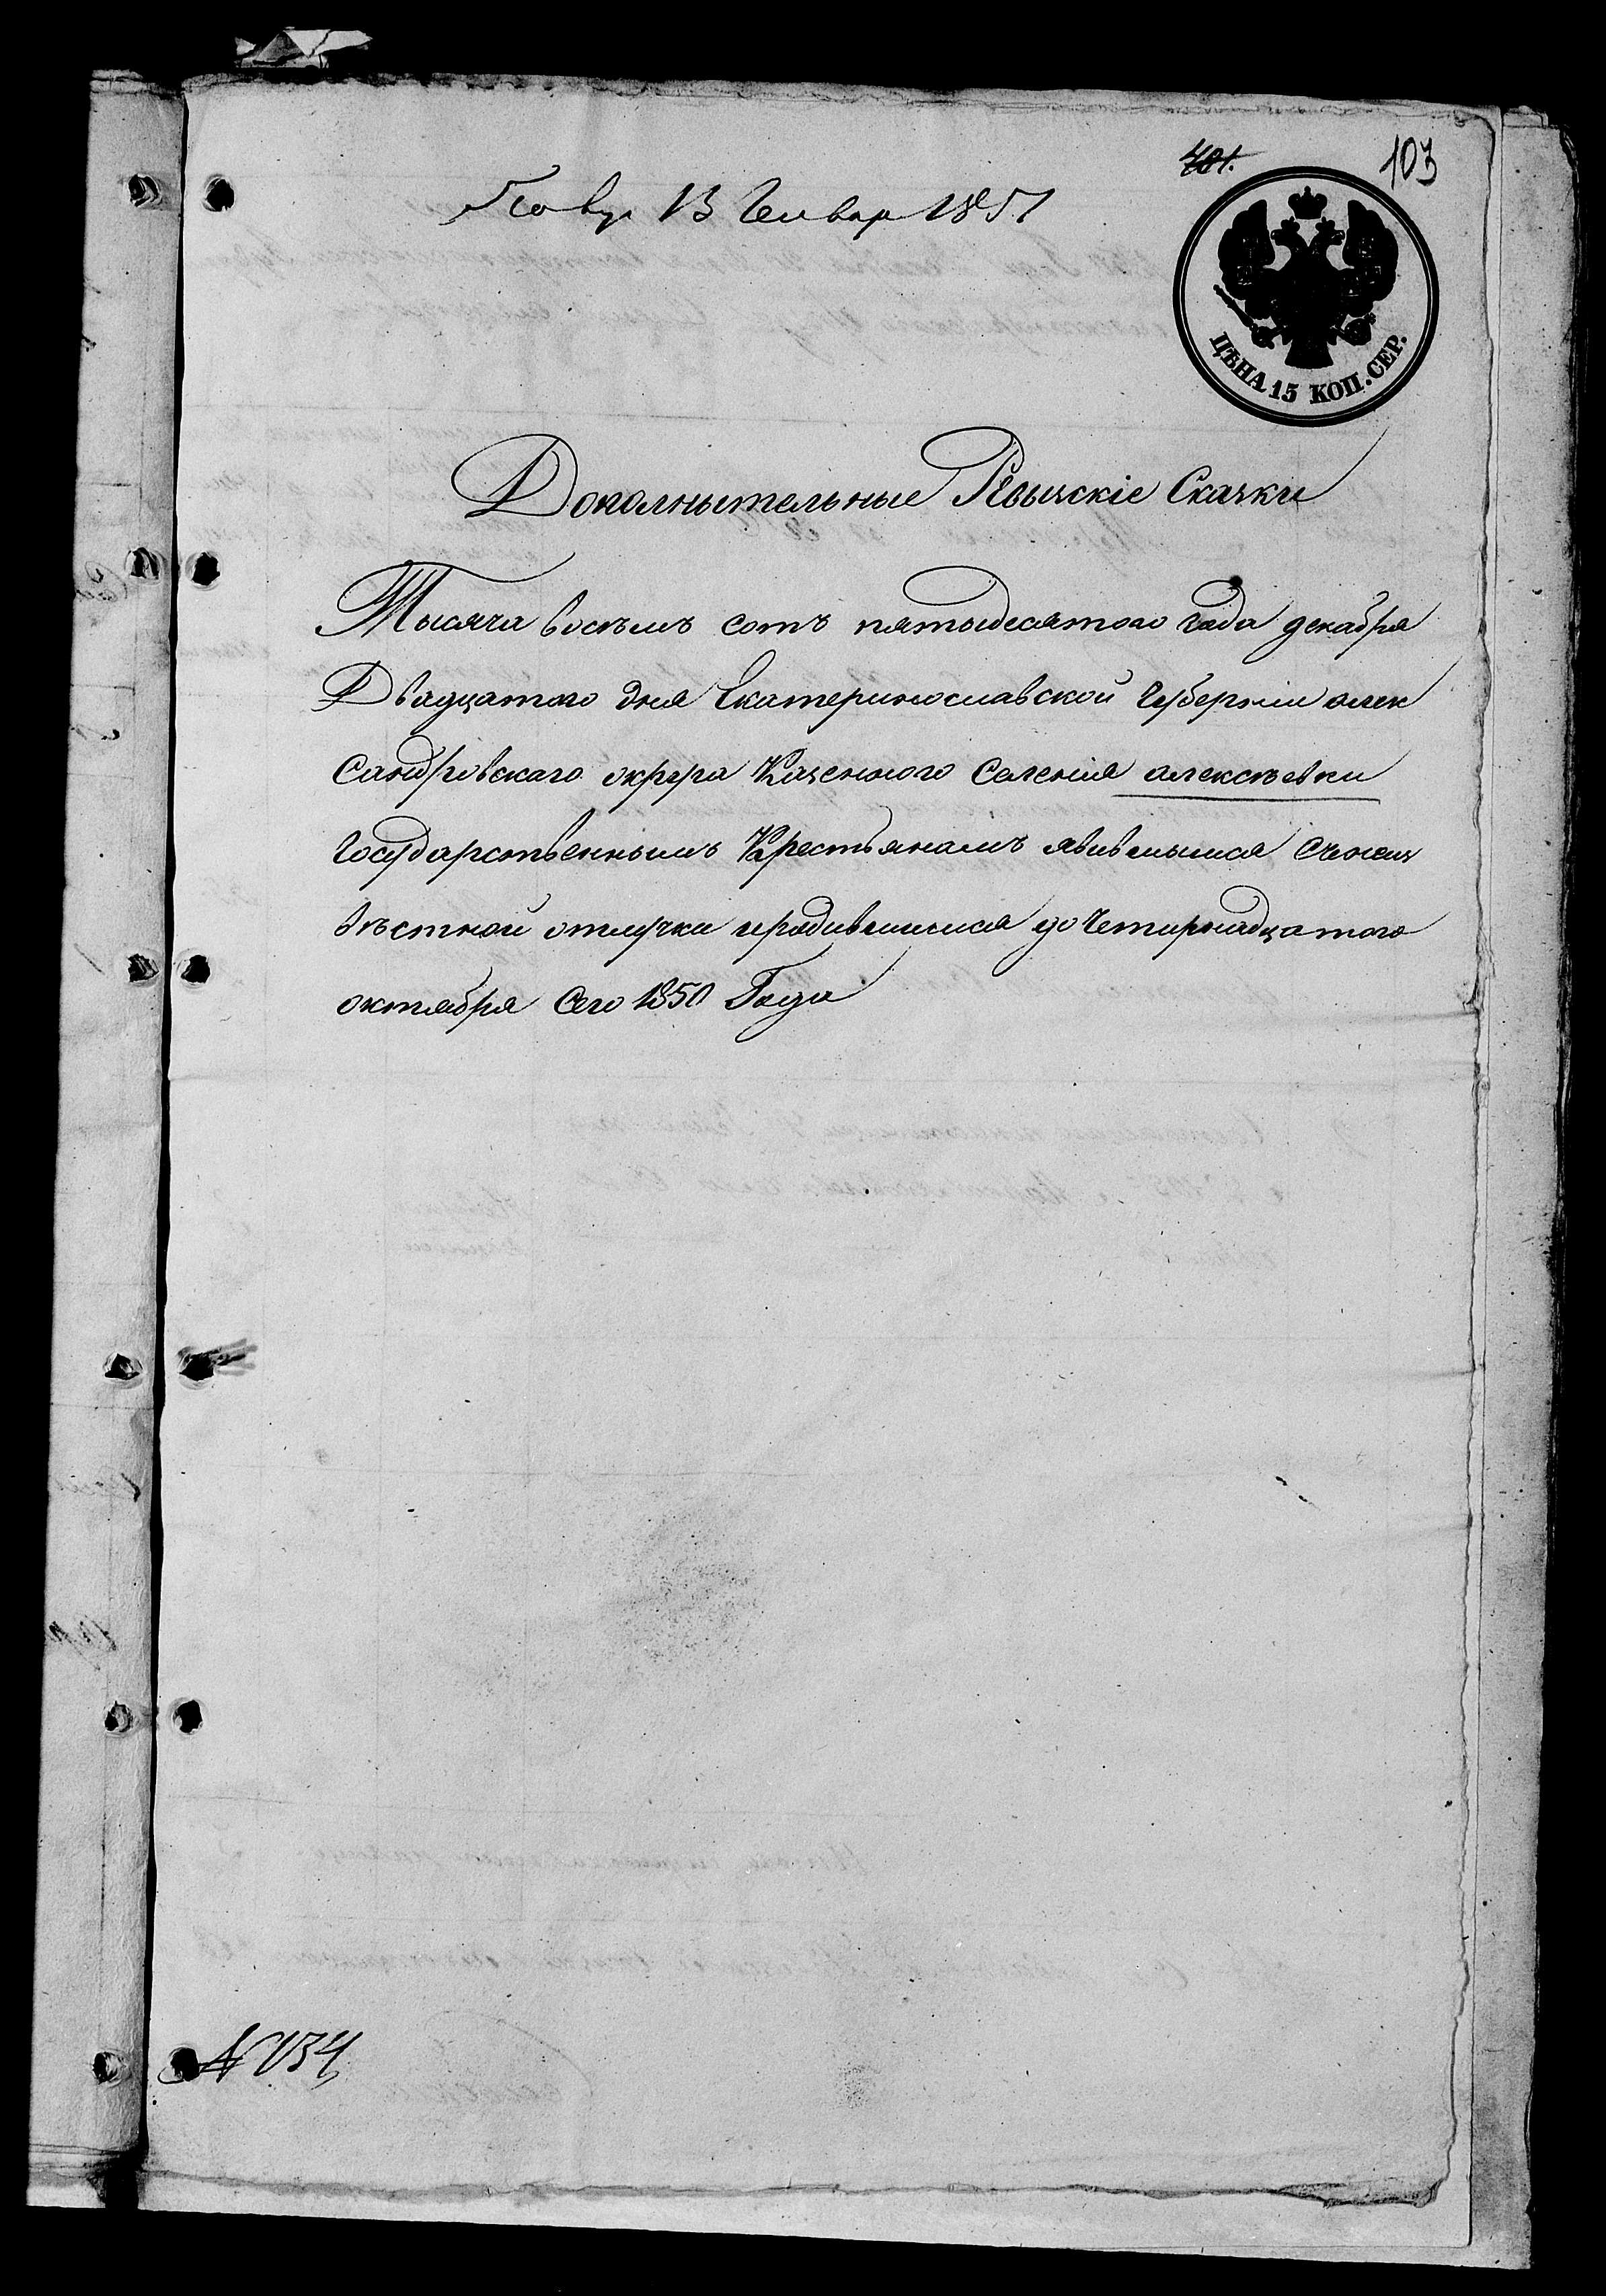 481.
103
13 Генвар 1851
ЦѢНА 15 КОП. СЕР.
Дополнытельные Рѣвызскіе Сказки
Тысяча восѣмъ сотъ пятыдесятого года декабря
Двадцатого дня Екатеринославской Губерніи алек
сандровскаго округа Казенного Селенія алексѣевки
Государственнымъ Крестьянамъ явившымися
вѣстной отлучки ирадившымися до Четырнадцатого
октября Сего 1850 Года
№ 134